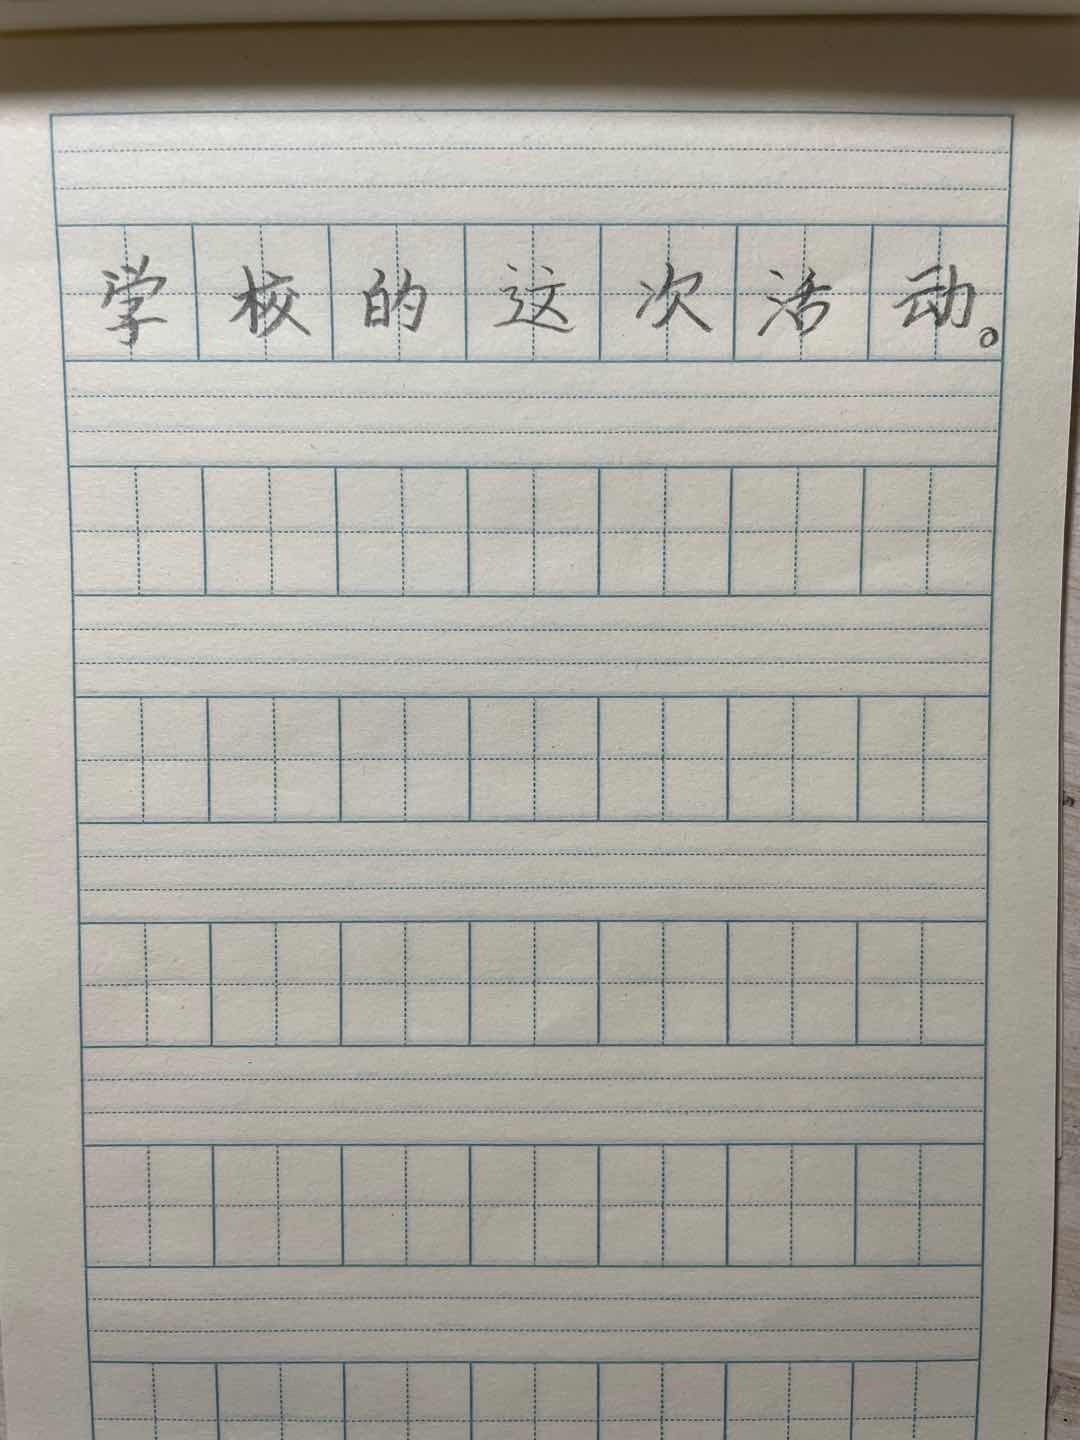 学校的这次活动。